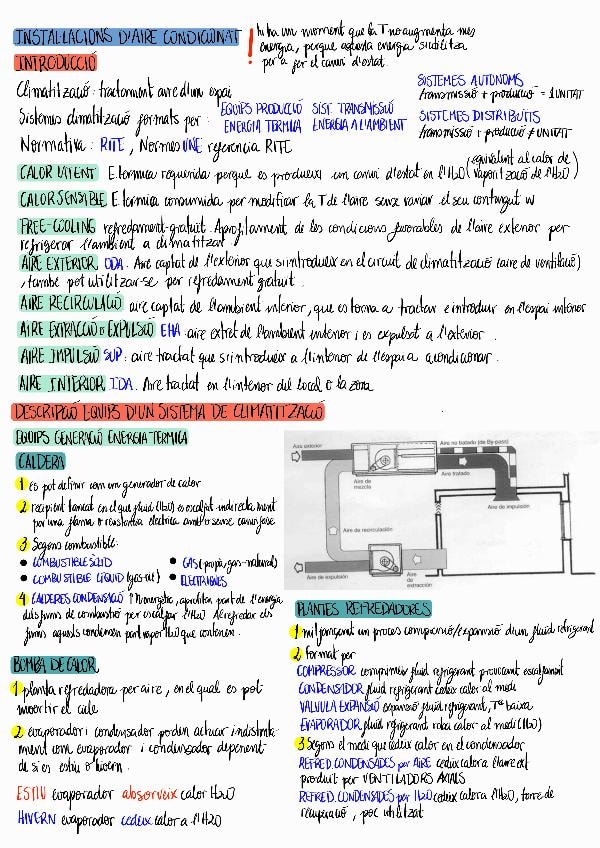 INSTAL·LACIONS D'AIRE CONDICIONAT
! hi ha un moment que la T no augmenta mes
energia, perque aquesta energia s'utilitza
per a fer el canvi d'estat.
INTRODUCCIÓ
Climatització: tractament aire d'un espai
Sistemes climatització formats per: EQUIPS PRODUCCIÓ ENERGIA TERMICA SIST. TRANSMISSIÓ ENERGIA A L'AMBIENT
SISTEMES AUTONOMS
transmissió + producció = 1 UNITAT
SISTEMES DISTRIBUITS
transmissió + producció ≠ UNITAT
Normativa: RITE, Normes UNE referencia RITE
CALOR LATENT E.termica requerida perque es produeixi un canvi d'estat en l'H2O (equivalent al calor de vaporització de l'H2O)
CALOR SENSIBLE E termica consumida per modificar la T de l'aire sense variar el seu contingut w
FREE-COOLING refredament-gratuit. Aprofitament de les condicions favorables de l'aire exterior per
refrigerar l'ambient a climatitzar
AIRE EXTERIOR ODA. Aire captat de l'exterior que s'introdueix en el circuit de climatització (aire de ventilació)
, també pot utilitzar-se per refredament gratuit.
AIRE RECIRCULACIÓ aire captat de l'ambient interior, que es torna a tractar e introduir en l'espai interior
AIRE EXTRACCIÓ o EXPULSIÓ EHA aire extret de l'ambient interior i es expulsat a l'exterior.
AIRE IMPULSIÓ SUP: aire tractat que s'introdueix a l'interior de l'espai a condicionar.
AIRE INTERIOR IDA. Aire tractat en l'interior del local o la zona
DESCRIPCIÓ EQUIPS D'UN SISTEMA DE CLIMATITZACIÓ
EQUIPS GENERACIÓ ENERGIA TERMICA
CALDERA
1 es pot definir com un generador de calor
2 recipient tancat en el que fluid (H2O) es escalfat indirectament
per una flama o resistencia electrica amb/o sense canvi fase
3 Segons combustible:
• COMBUSTIBLE SOLID
• GAS (propà, gas-natural)
• COMBUSTIBLE LIQUID (gas-oil)
• ELECTRIQUES
4 CALDERES CONDENSACIÓ ↑ η energètic, aprofiten part de l'energia
dels fums de combustió per escalfar l'H2O. Al refredar els
fums aquests condensen part vapor H2O que contenen.
BOMBA DE CALOR
1 planta refredadora per aire, en el qual es pot
invertir el cicle
2 evaporador i condensador poden actuar indistinta-
ment com evaporador i condensador depenent
de si es estiu o hivern.
ESTIU evaporador absorveix calor H2O
HIVERN evaporador cedeix calor a l'H2O
Aire exterior
Aire de mezcla
Aire no tratado (de By-pass)
Aire tratado
Aire de impulsión
Aire de recirculación
Aire de expulsión
Aire de extracción
PLANTES REFREDADORES
1 mitjançant un proces compresió/expansió d'un fluid refrigerant
2 Format per
COMPRESSOR comprimeix fluid refrigerant provocant escalfament
CONDENSADOR fluid refrigerant cedeix calor al medi
VALVULA EXPANSIÓ expansió fluid refrigerant, Tª baixa
EVAPORADOR fluid refrigerant roba calor al medi (H2O)
3 Segons el medi que cedeix calor en el condensador
REFRED. CONDENSADES per AIRE cedeix calor a l'aire ext
produit per VENTILADORS AXIALS
REFRED. CONDENSADES per H2O cedeix calor a l'H2O, torre de
recuperació, poc utilitzat